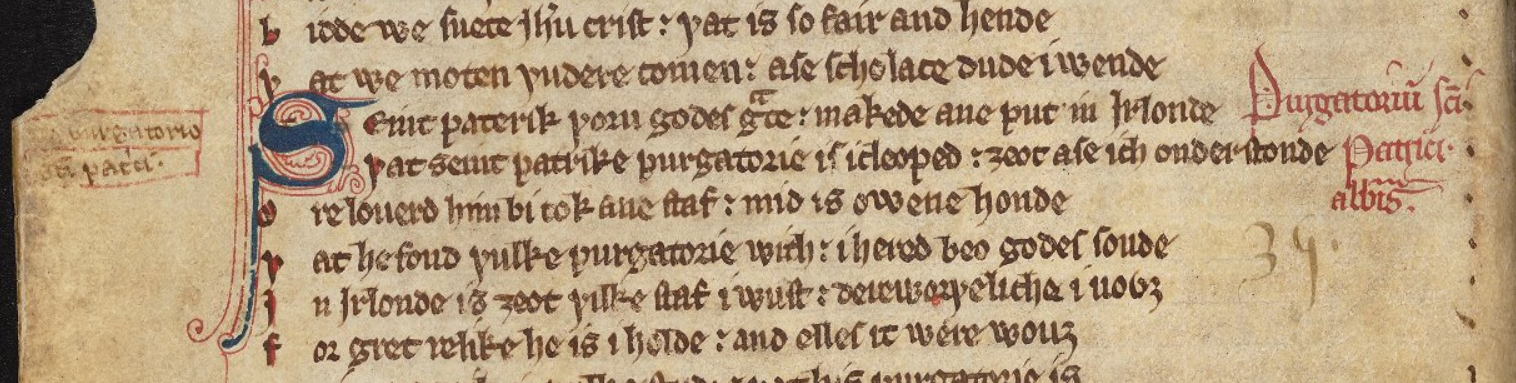 b idde we suete Jhu crist : þat is so fair and hende
þ at we moten þudere comen : ase scholace dude i wende
Seint paterik þoru godes gͣce : makede ane put in Jrlonde Purgatoriū sci
þat seint patrike purgatorie is icleoped : ȝeot ase ich onderstonde Patricii
o re louerd him bi tok ane staf : mid is owene honde abbis.
þ at he fond þulke purgatorie with : i hered beo godes sonde 34.
J n Jrlonde is ȝeot þilke staf i wust : dereworþeliche i novȝ
f or gret relike he is i holde : and elles it were wouȝ
purgatorio
patͥcii.
purgatorie is